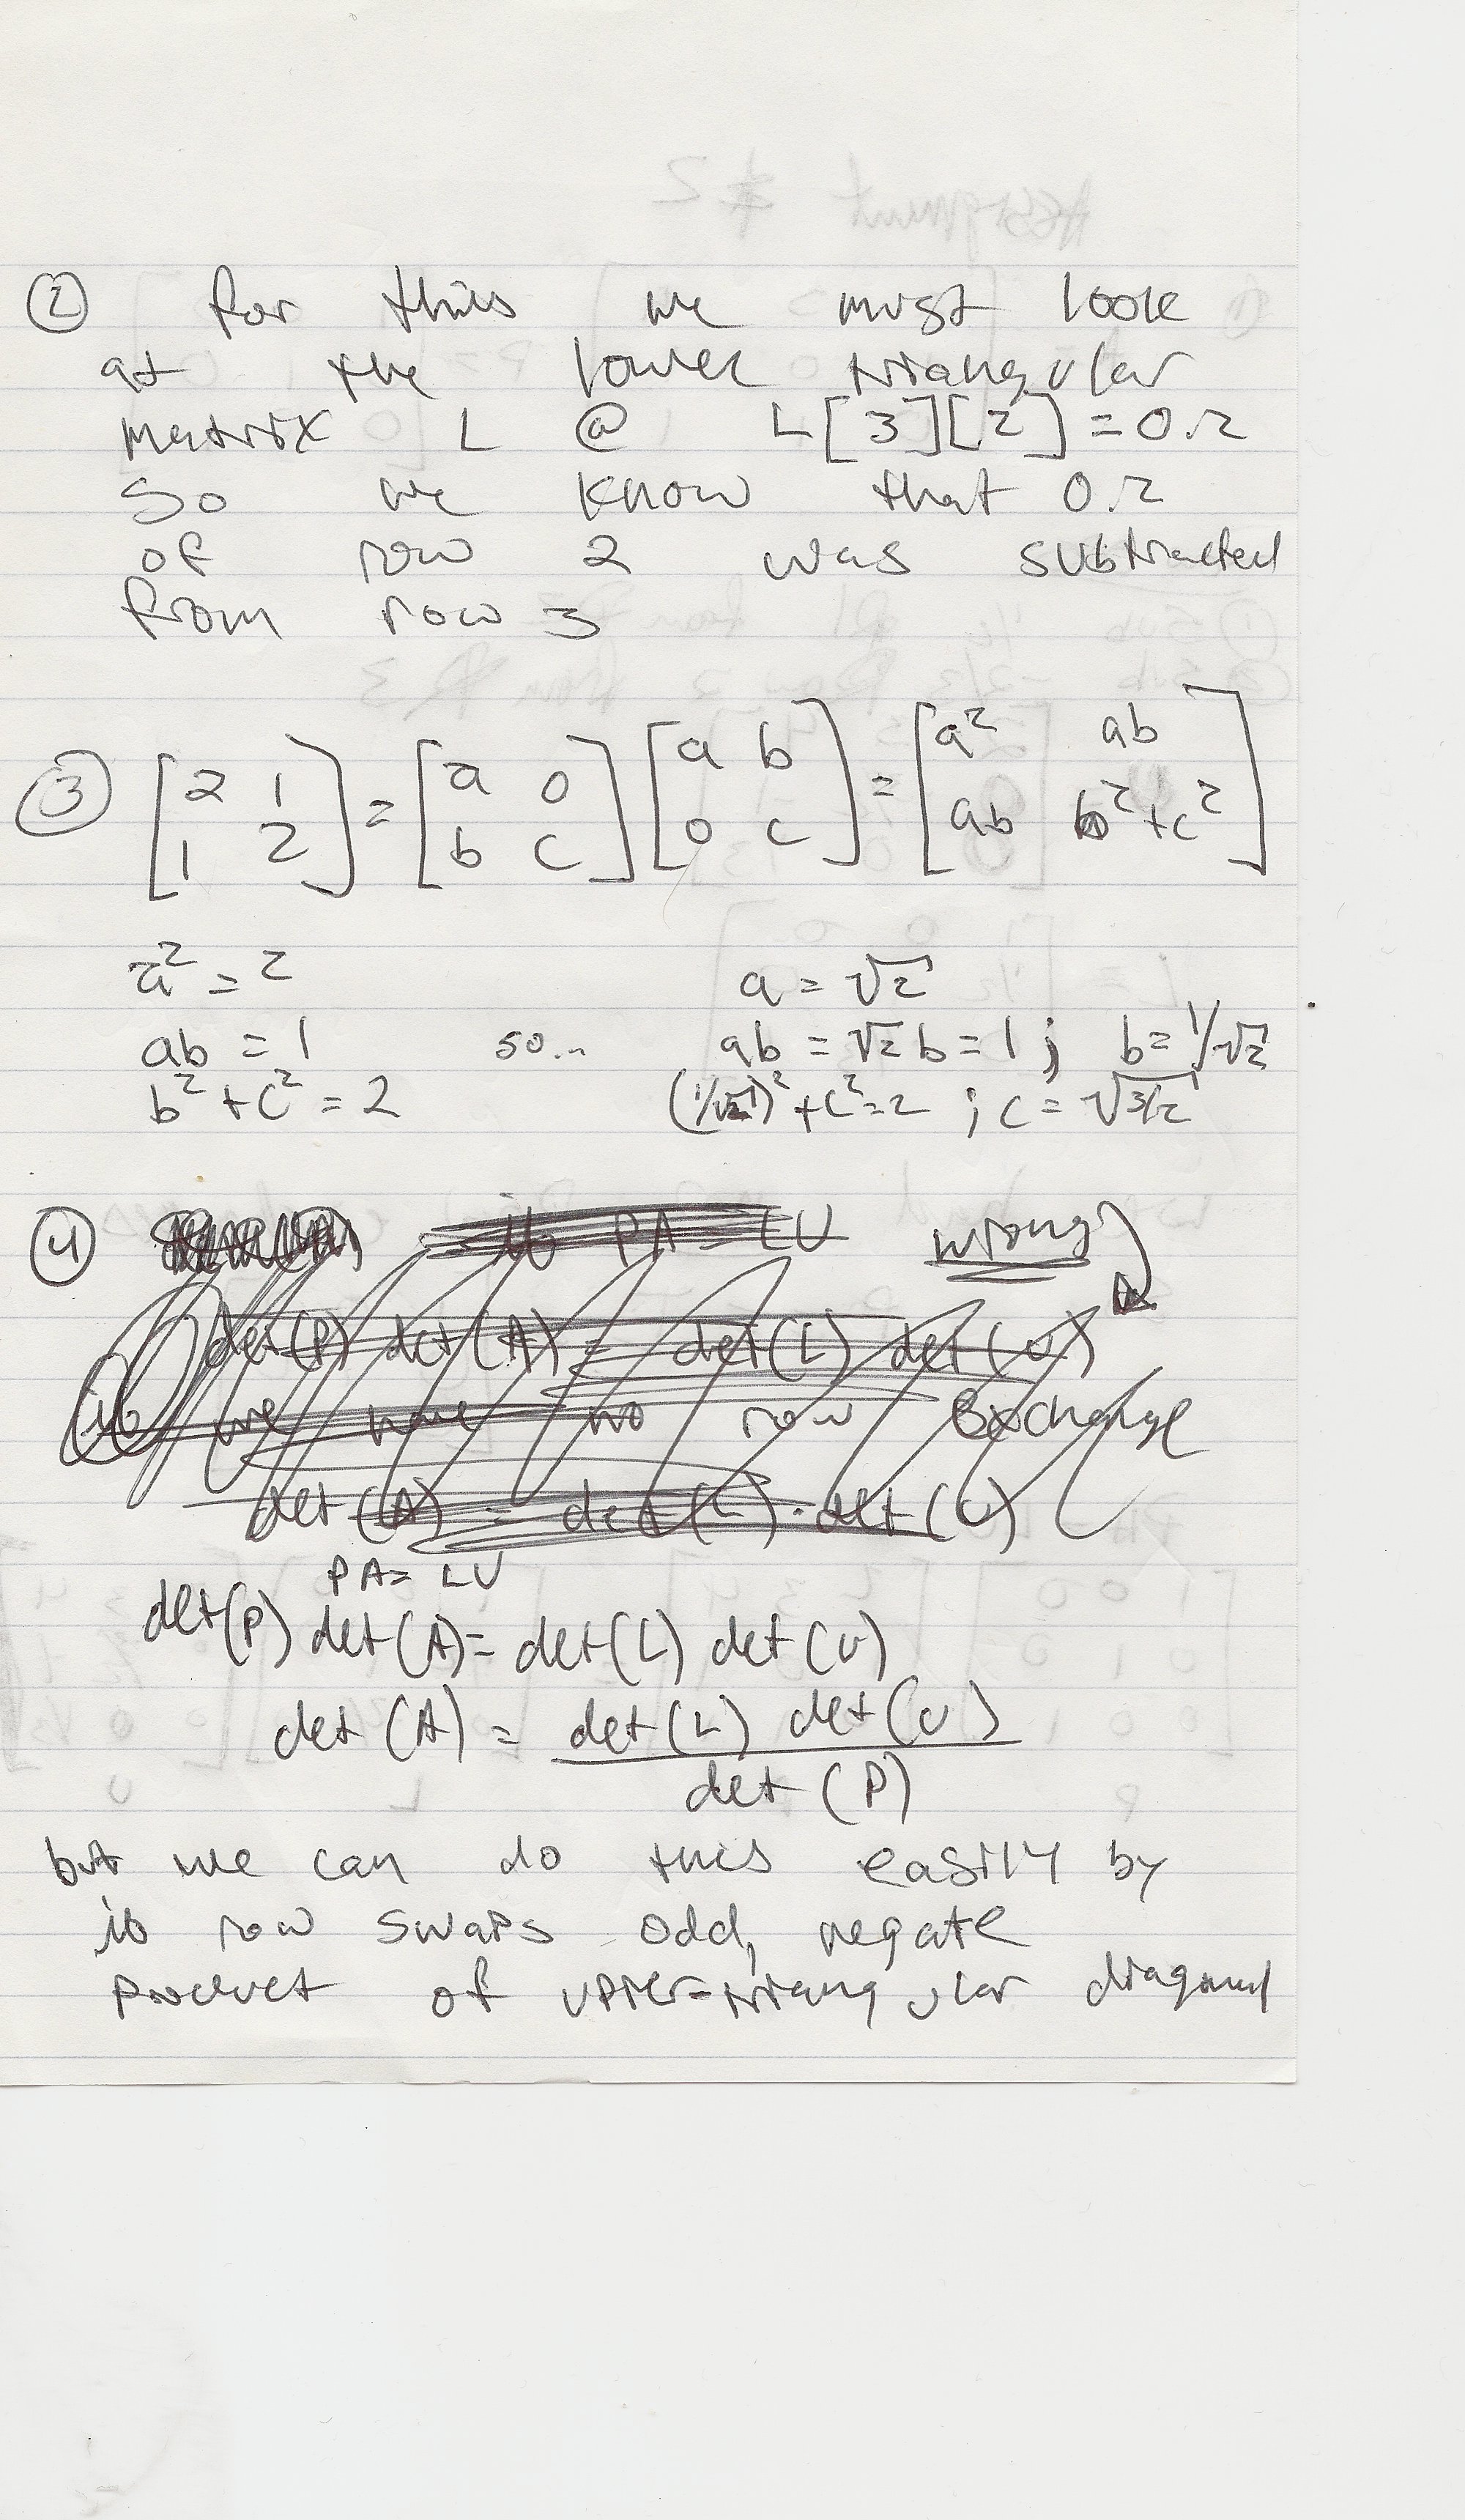 ② for this we must look
at the lower triangular
matrix L @ L[3][2] = 0.2
So we know that 0.2
of row 2 was subtracted
from row 3
③ [2 1; 1 2] = [a 0; b c] [a b; 0 c] = [a² ab; ab b²+c²]
a² = 2 a = √2
ab = 1 so... ab = √2 b = 1 ; b = 1/√2
b² + c² = 2 (1/√2)² + c² = 2 ; c = √3/2
④ if PA = LU wrong
det(P) det(A) = det(L) det(U)
if we have no row exchange
det(A) = det(L) · det(U)
PA = LU
det(P) det(A) = det(L) det(U)
det(A) = det(L) det(U)
det(P)
but we can do this easily by
if row swaps odd, negate
product of upper-triangular diagonal